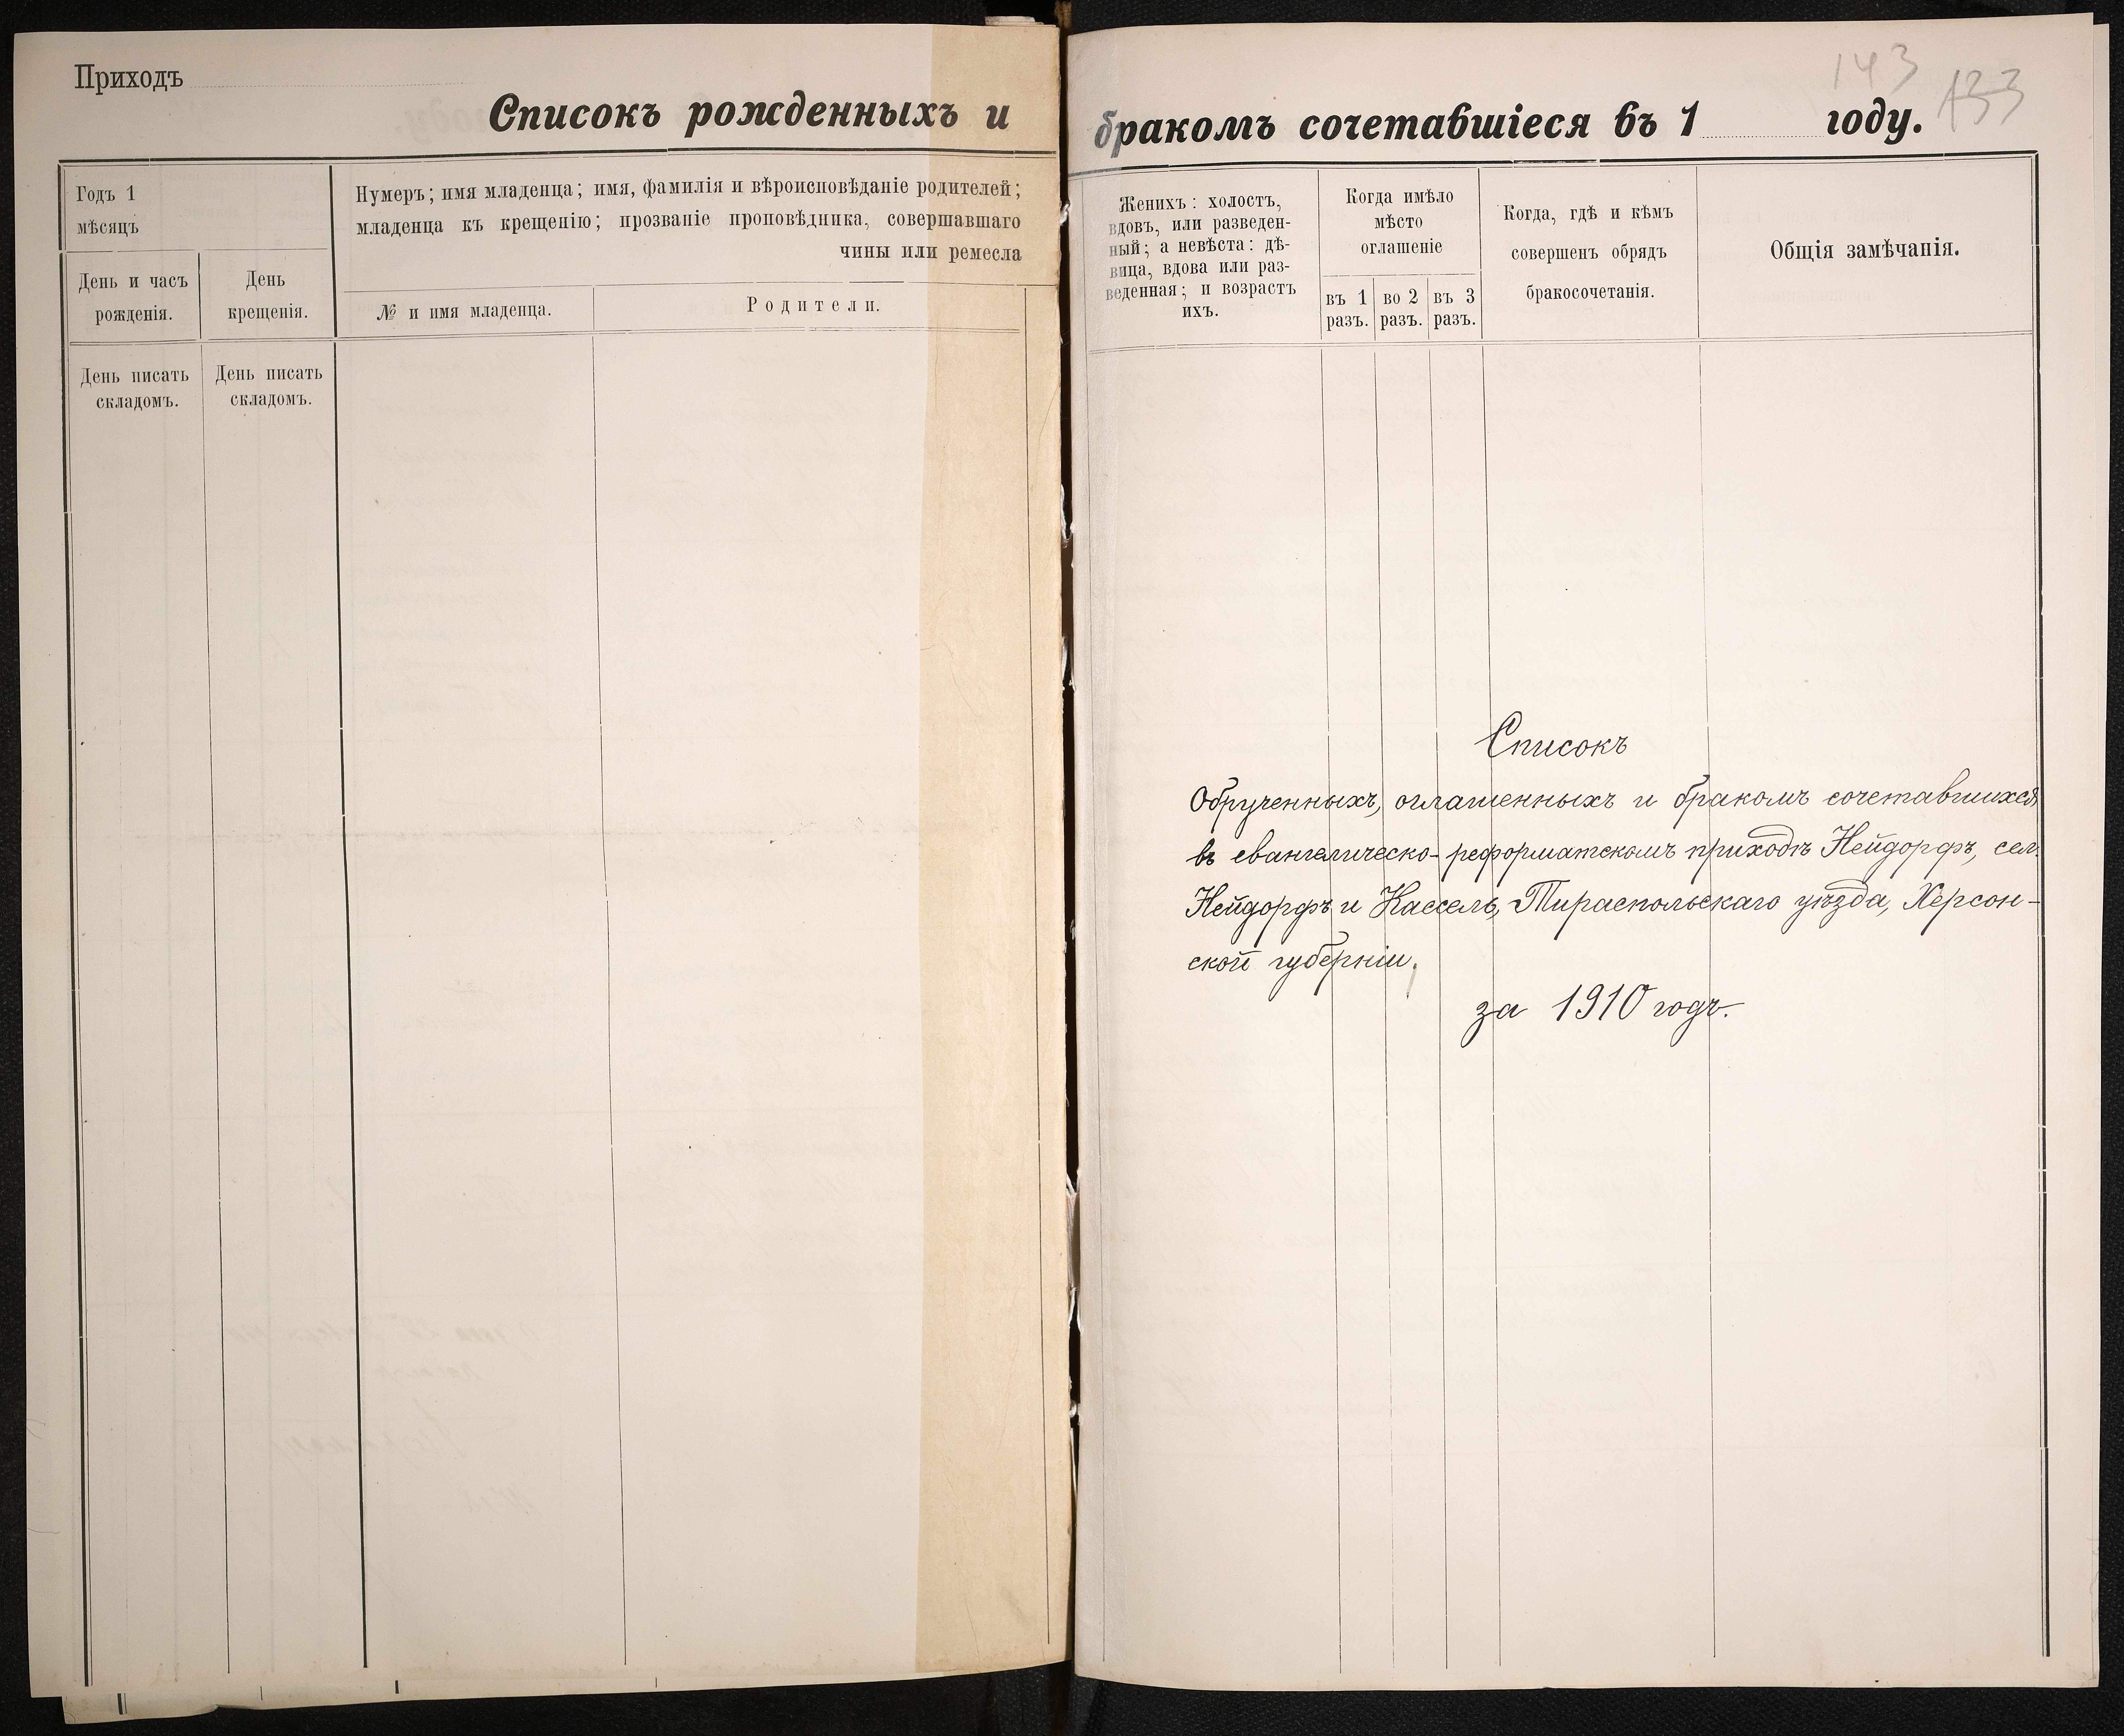 Приходъ
Списокъ рожденныхъ и
Годъ 1
мѣсяцъ
Нумеръ; имя младенца; имя, фамилія и вѣроисповѣданіе родителей;
младенца къ крещенію; прозваніе проповѣдника, совершавшаго
чины или ремесла
День и часъ
рожденія.
День
крещенія.
№ и имя младенца.
Родители.
День писать
складомъ.
День писать
складомъ.
143
133
бракомъ сочетавшіеся въ 1 году.
Женихъ: холостъ,
вдовъ, или разведен-
ный; а невѣста: дѣ-
вица, вдова или раз-
веденная; и возрастъ
ихъ.
Когда имѣло
мѣсто
оглашеніе
въ 1
разъ.
во 2
разъ.
въ 3
разъ.
Когда, гдѣ и кѣмъ
совершенъ обрядъ
бракосочетанія.
Общія замѣчанія.
Списокъ
Обрученныхъ, оглашенныхъ и бракомъ сочетавшихся
въ евангелическо-реформатскомъ приходѣ Нейдорфъ, сел.
Нейдорфъ и Кассель, Тираспольскаго уѣзда, Херсон-
ской губерніи.
за 1910 годъ.